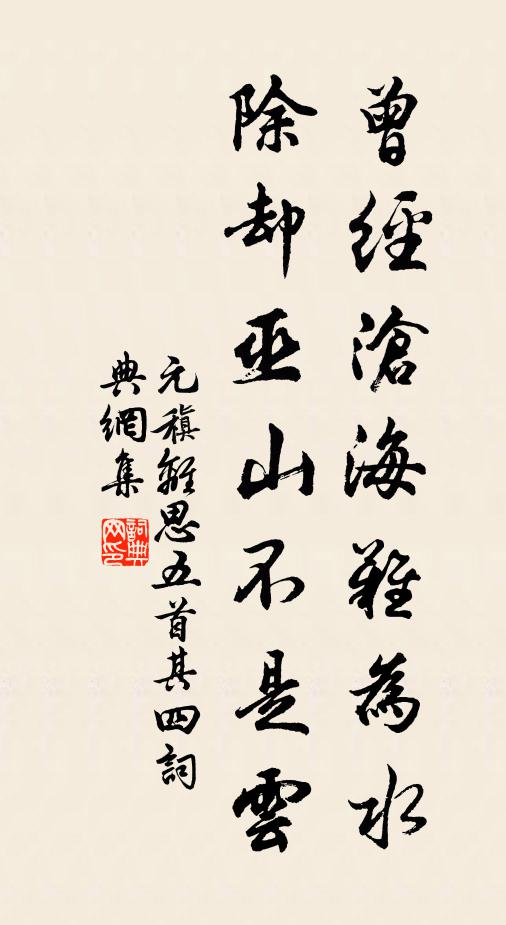 曾經滄海難為水
除却巫山不是雲
元稹離思五首其四詞
典網集
詞典
网印